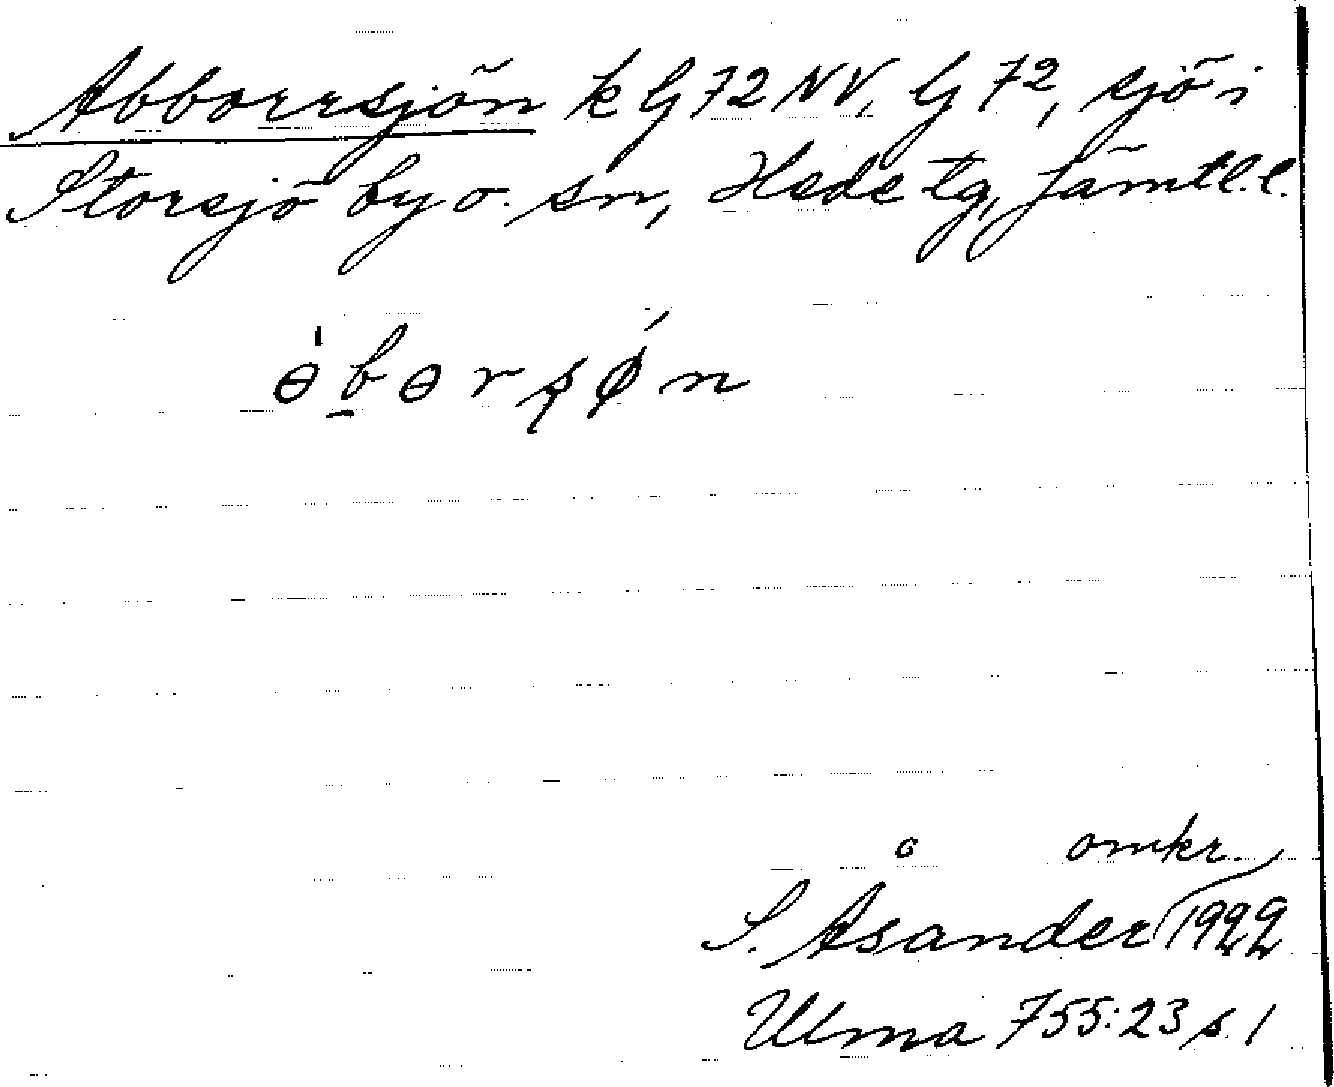 Abborrsjön k G72NV, G72, sjö i
Storsjö by o. sn, Hede tg, Jämtl. l.
ɵ̍b̠ɵrʂǿn
omkr.
S. Åsander 1922
Ulma 755:23 s. 1